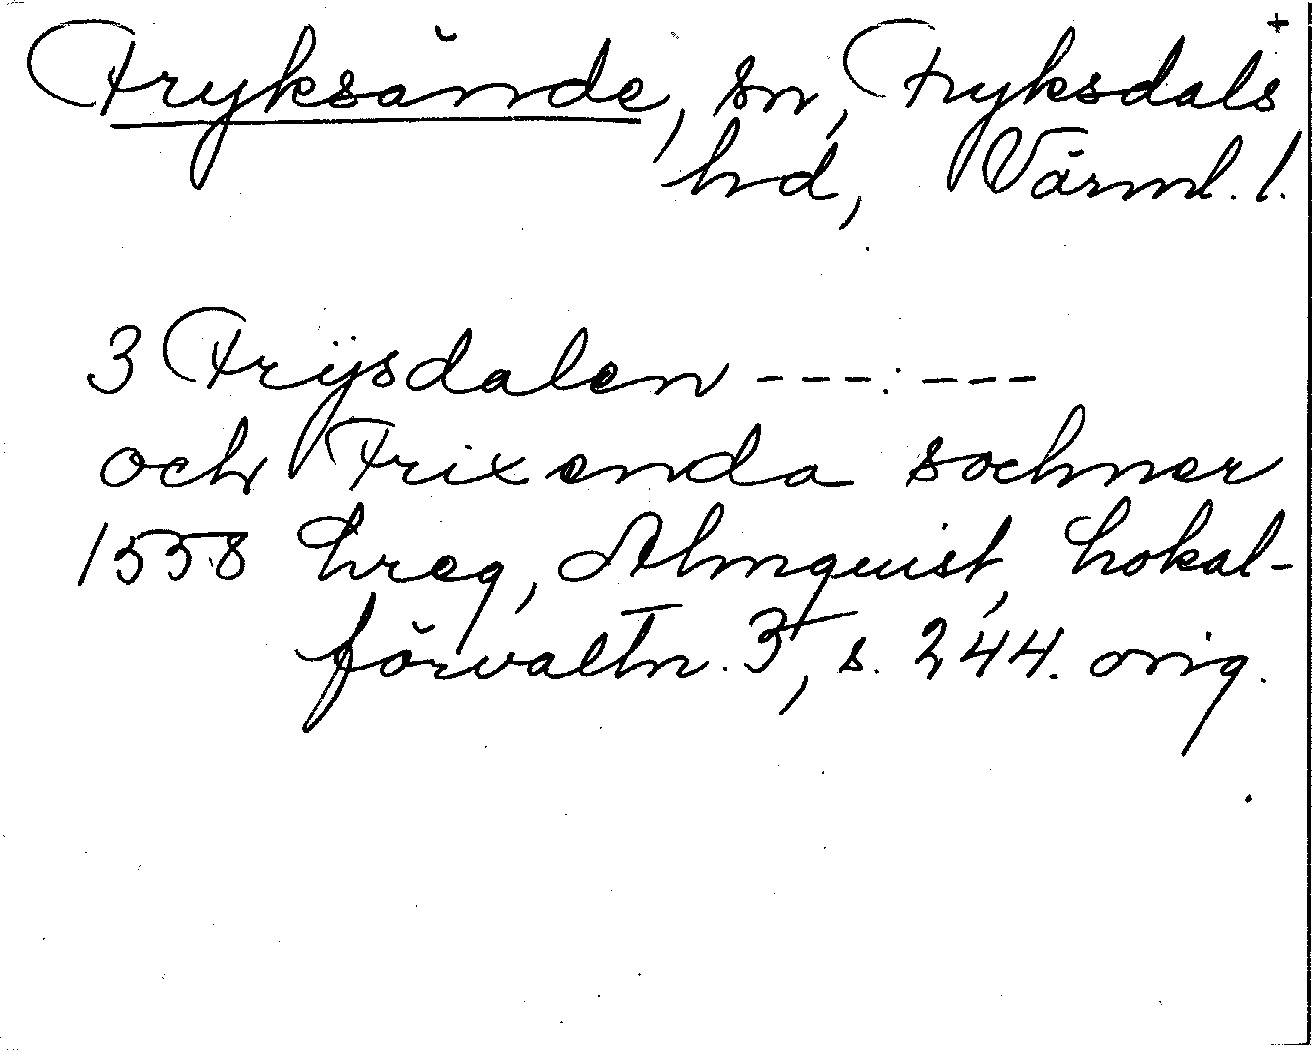 +
Fryksände, sn, Fryksdals
hd, Värml. l.
3 Frÿsdalen ---.·---
och Frixenda sochner
1558 Lreg, Almquist, Lokal-
förvaltn. 3, s. 244. orig.